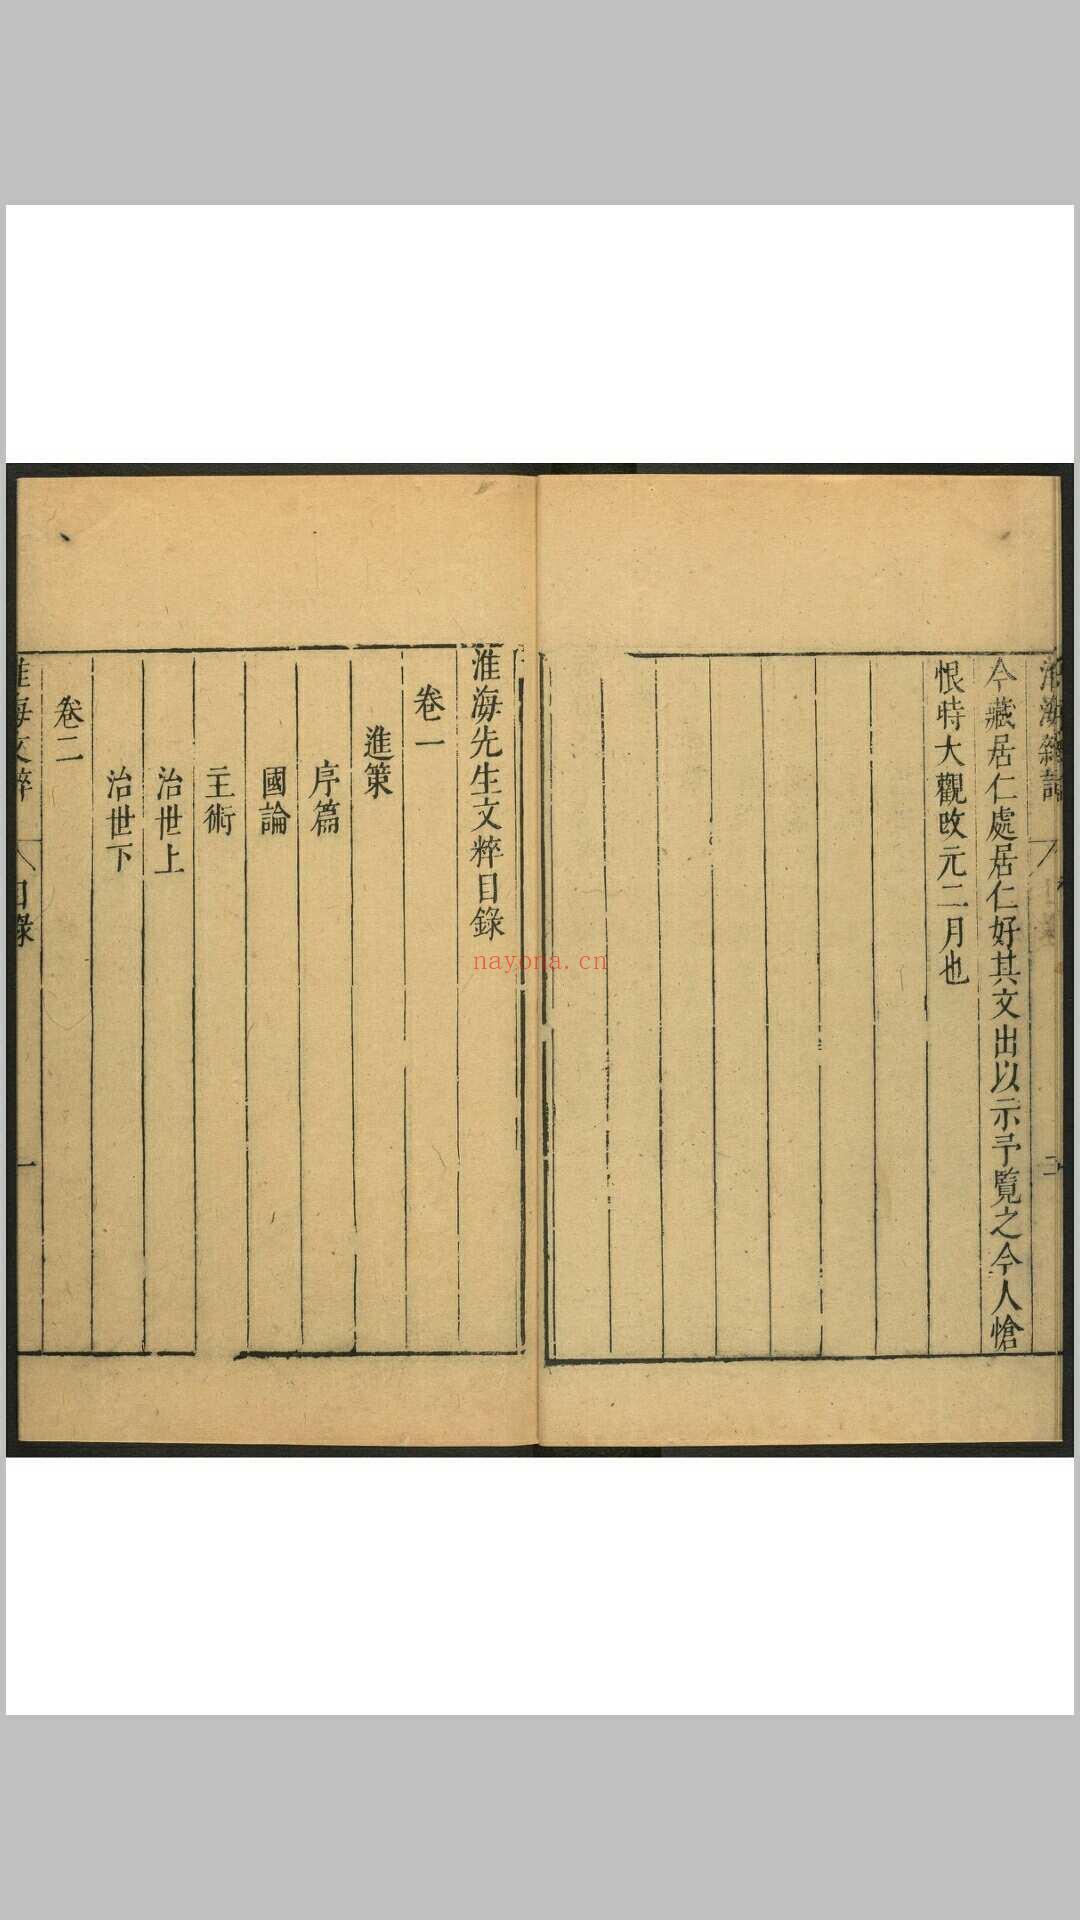 今藏居仁處居仁好其文出以示予覽之令人愴
恨時大觀改元二月也
淮海先生文粹目錄
卷一
進策
序篇
國論
主術
治世上
治世下
卷二
淮海文粹
目錄
一
nayona.cn